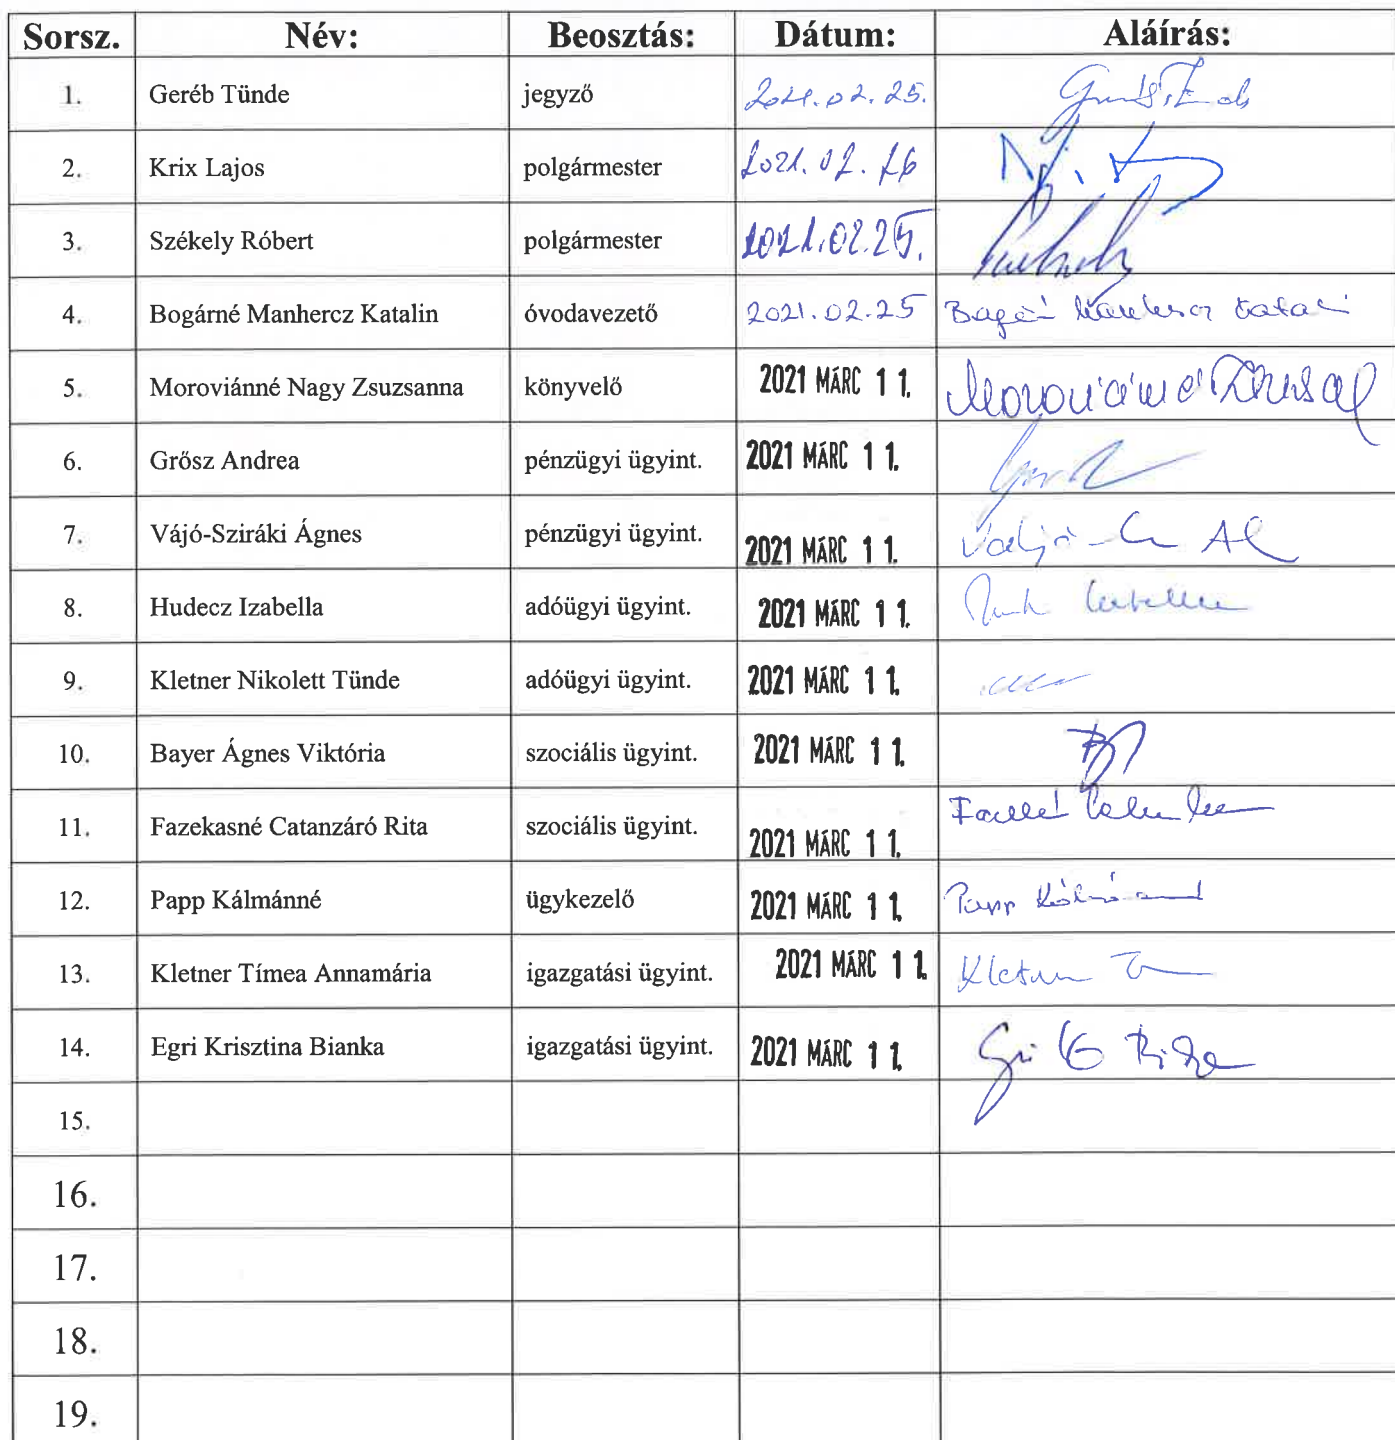 Sorsz. Név: Beosztás: Dátum: Aláírás:
1. Geréb Tünde jegyző 2021.02.25.
2. Krix Lajos polgármester 2021.02.26
3. Székely Róbert polgármester 2021.02.25.
4. Bogárné Manhercz Katalin óvodavezető 2021.02.25
5. Moroviánné Nagy Zsuzsanna könyvelő 2021 MÁRC 11.
6. Grősz Andrea pénzügyi ügyint. 2021 MÁRC 11.
7. Vájó-Sziráki Ágnes pénzügyi ügyint. 2021 MÁRC 11.
8. Hudecz Izabella adóügyi ügyint. 2021 MÁRC 11.
9. Kletner Nikolett Tünde adóügyi ügyint. 2021 MÁRC 11.
10. Bayer Ágnes Viktória szociális ügyint. 2021 MÁRC 11.
11. Fazekasné Catanzáró Rita szociális ügyint. 2021 MÁRC 11.
12. Papp Kálmánné ügykezelő 2021 MÁRC 11. Papp Kálmánné
13. Kletner Tímea Annamária igazgatási ügyint. 2021 MÁRC 11. Kletner
14. Egri Krisztina Bianka igazgatási ügyint. 2021 MÁRC 11.
15.
16.
17.
18.
19.